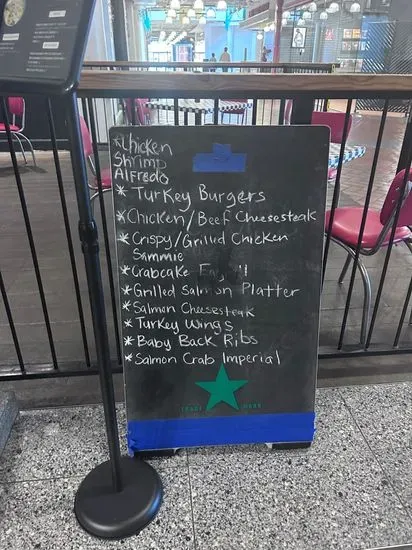 *Chicken
Shrimp
Alfredo
* Turkey Burgers
*Chicken/Beef Cheesesteak
* Crispy/Grilled Chicken
Sammie
* Crabcake
* Grilled Salmon Platter
* Salmon Cheesesteak
* Turkey Wings
* Baby Back Ribs
* Salmon Crab Imperial
TRADE MARK